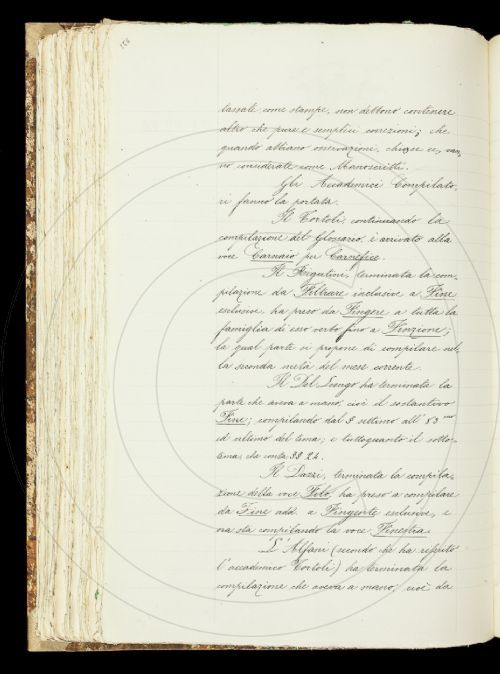 tassate come stampe, non debbono contenere
altro che pure e semplici correzioni; che
quando abbiano osservazioni, chiose ec, van-
no considerate come Manoscritti.
Gli Accademici Compilato-
ri fanno la portata.
Il Tortoli, continuando la
compilazione del Glossario, è arrivato alla
voce Carnaio per Carnefice.
Il Rigutini, terminata la com-
pilazione da Filtrare inclusive a Fine
esclusive, ha preso da Fingere a tutta la
famiglia di esso verbo fino a Finzione;
la qual parte si propone di compilare nel-
la seconda metà del mese corrente.
Il Del Lungo ha terminata la
parte che aveva a mano, cioè il sostantivo
Fine; compilando dal § settimo all'
ed ultimo del tema; e tuttoquanto il sotto-
tema, che conta §§ 24.
Il Dazzi, terminata la compila-
zione della voce Filo, ha preso a compilare
da Fine add. a Fingente esclusive, e
ora sta compilando la voce Finestra.
L'Alfani (secondo che ha referito
l'accademico Tortoli) ha terminata la
compilazione che aveva a mano, cioè da